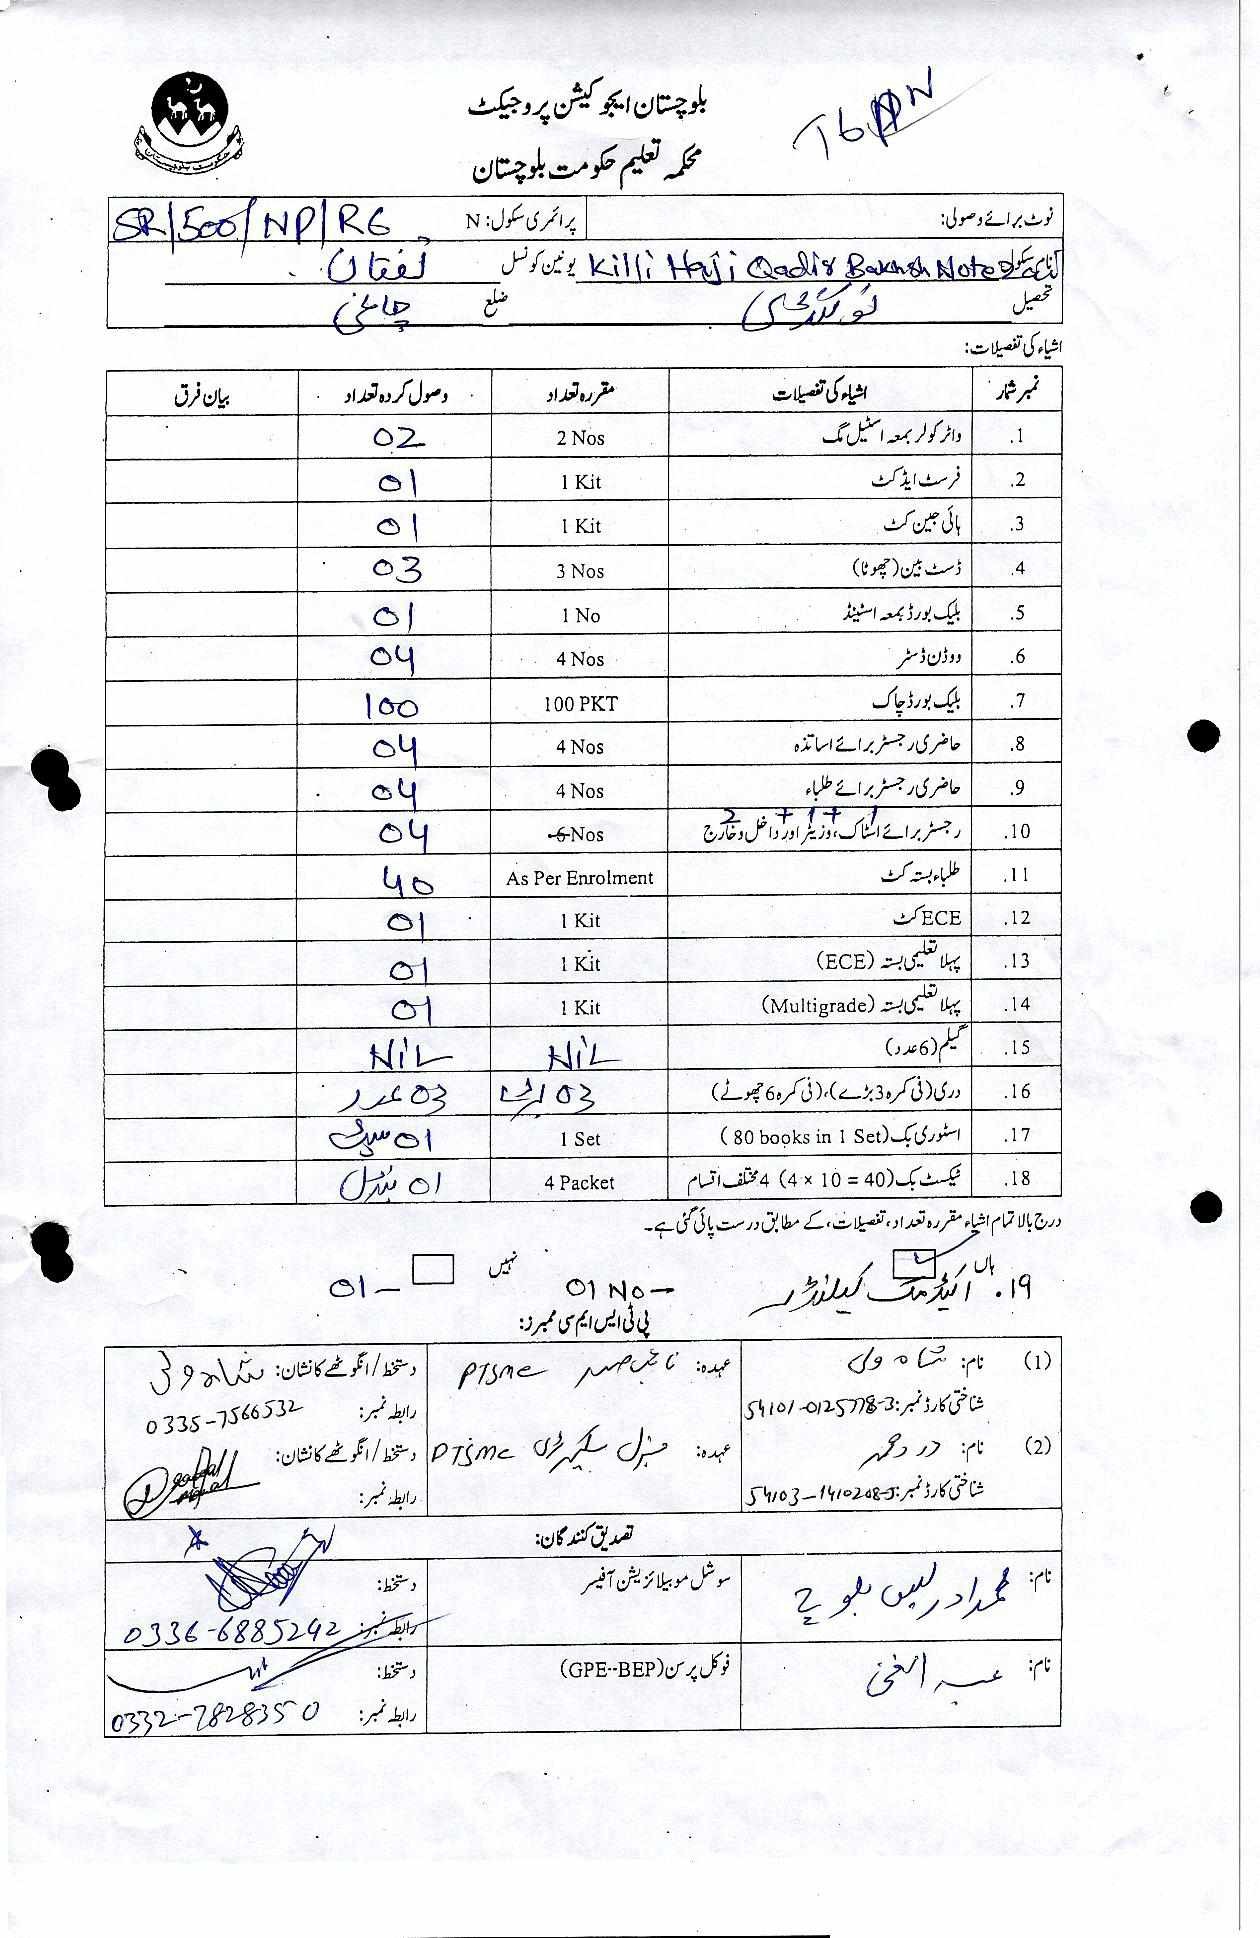 بلوچستان ایجوکیشن پروجیکٹ
محکمہ تعلیم حکومت بلوچستان
نوٹ برائے وصولی: پرائمری سکول: N SR/500/NP/RG
نام سکول Killi Haji Qadir Bakhsh Notezai یونین کونسل تفتان
تحصیل نوکنڈی ضلع چاغی
اشیاء کی تفصیلات:
نمبر شمار اشیاء کی تفصیلات مقررہ تعداد وصول کردہ تعداد بیان فرق
1. واٹر کولر بمعہ اسٹیل مگ 2 Nos 02
2. فرسٹ ایڈ کٹ 1 Kit 01
3. ہائی جین کٹ 1 Kit 01
4. ڈسٹ بین (چھوٹا) 3 Nos 03
5. بلیک بورڈ بمعہ اسٹینڈ 1 No 01
6. ووڈن ڈسٹر 4 Nos 04
7. بلیک بورڈ چاک 100 PKT 100
8. حاضری رجسٹر برائے اساتذہ 4 Nos 04
9. حاضری رجسٹر برائے طلباء 4 Nos 04
2 + 1 + 1
10. رجسٹر برائے اسٹاک، وزیٹر اور داخل و خارج 6 Nos 04
11. طلباء بستہ کٹ As Per Enrolment 40
12. ECE کٹ 1 Kit 01
13. پہلا تعلیمی بستہ (ECE) 1 Kit 01
14. پہلا تعلیمی بستہ (Multigrade) 1 Kit 01
15. گلیم (6 عدد) NiL NiL
16. دری (فی کمرہ 3 بڑے)، (فی کمرہ 6 چھوٹے) 03 بڑے 03 عدد
17. اسٹوری بک (80 books in 1 Set) 1 Set 01 سیٹ
18. ٹیکسٹ بک (4 × 10 = 40) 4 مختلف اقسام 4 Packet 01 بنڈل
درج بالا تمام اشیاء مقررہ تعداد، تفصیلات، کے مطابق درست پائی گئی ہے۔
ہاں نہیں
۱۹. اکیڈمک کیلنڈر 01 No - 01
پی ٹی ایس ایم سی ممبرز:
(1) نام: شاہ ولی عہدہ: نائب صدر PTSMC دستخط/انگوٹھے کا نشان: شاہ ولی
شناختی کارڈ نمبر: 54101-0125778-3 رابطہ نمبر: 0335-7566532
(2) نام: درمحمد عہدہ: جنرل سیکریٹری PTSMC دستخط/انگوٹھے کا نشان:
شناختی کارڈ نمبر: 54103-1410208-5 رابطہ نمبر:
تصدیق کنندگان:
نام: محمد ادریس بلوچ سوشل موبیلائزیشن آفیسر دستخط:
رابطہ نمبر: 0336-6885242
نام: عبدالغنی فوکل پرسن (GPE--BEP) دستخط:
رابطہ نمبر: 0332-7828350